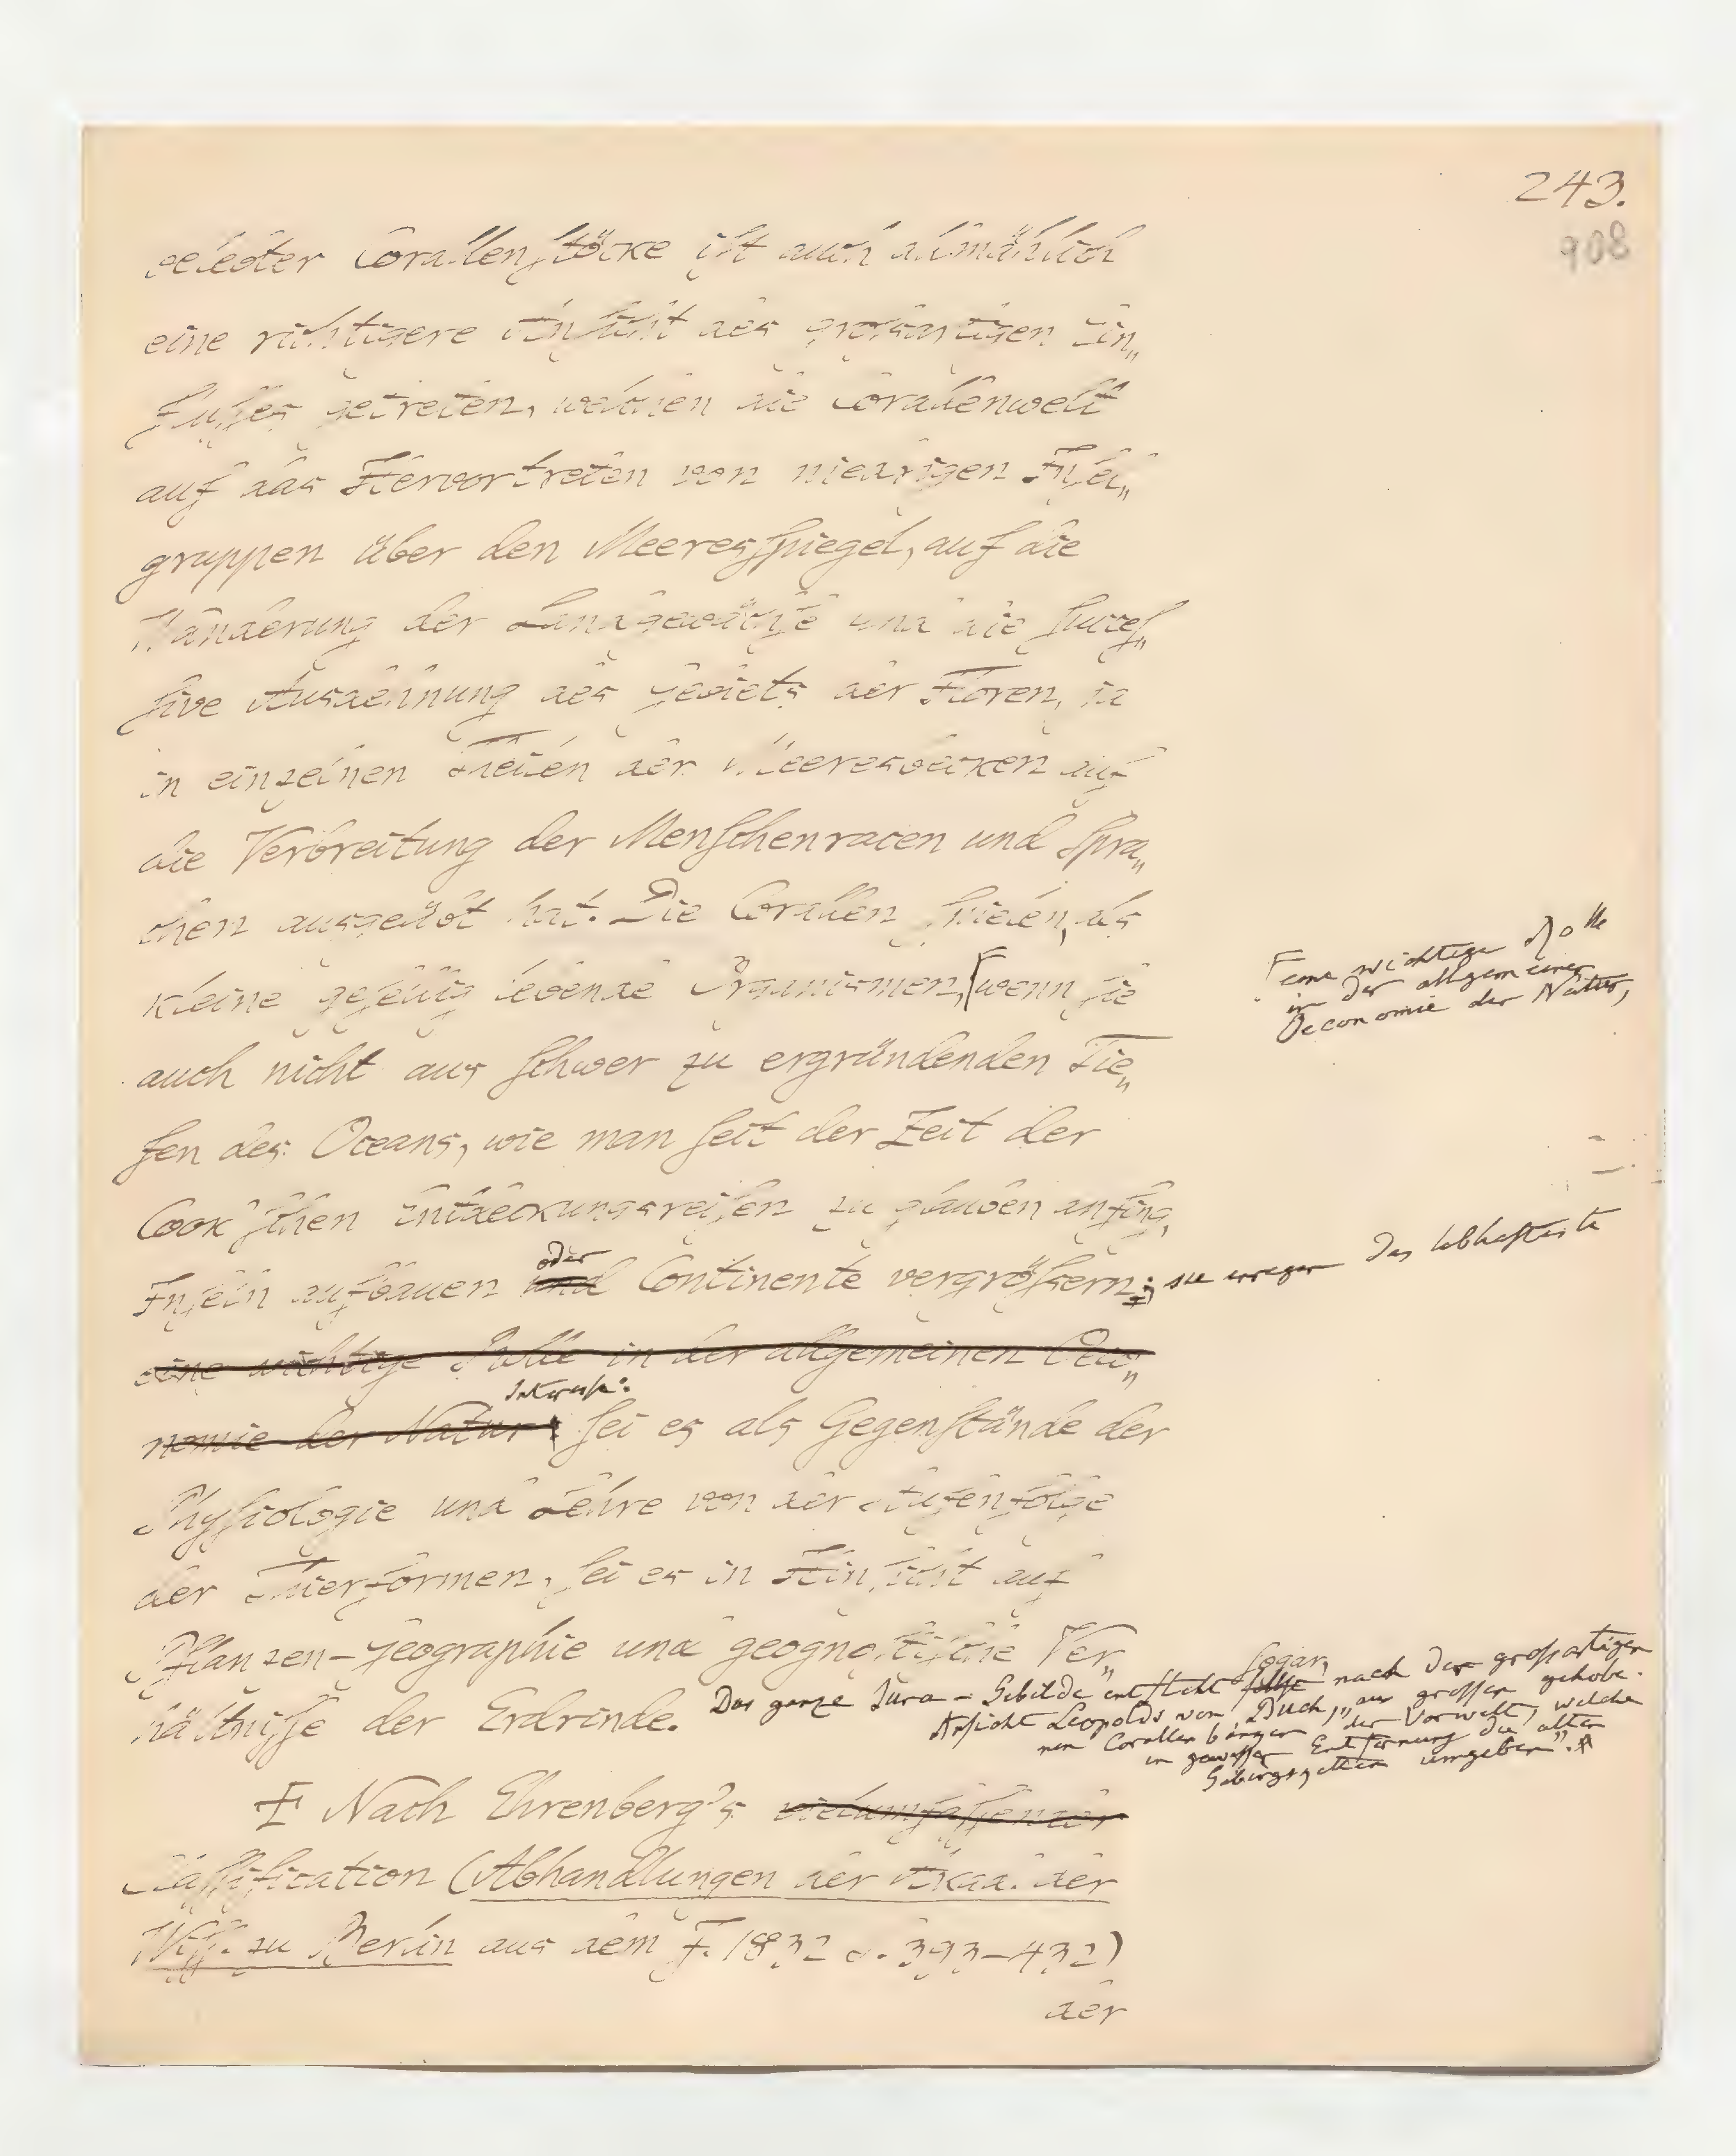 243.
908
belebter Corallenstöcke ist auch allmählich
eine richtigere Einsicht des großartigen Ein„
flusses getreten, welchen die Corallenwelt
auf das Hervortreten von niedrigen Insel„
gruppen über den Meeresspiegel, auf die
Wanderung der Landgewächse und die succes„
sive Ausdehnung des Gebiets der Floren, ja
in einzelnen Theilen der Meeresbecken auf
die Verbreitung der Menschenracen und Spra„
chen ausgeübt hat. Die Corallen spielen, als
kleine gesellig lebende Organismen, wenn sie
eine wichtige Rolle
in der allgemeinen
Oeconomie der Natur,
auch nicht aus schwer zu ergründenden Tie„
fen des Oceans, wie man seit der Zeit der
Cook'schen Entdeckungsreisen zu glauben anfing,
oder
Inseln aufbauen und Continente vergrößern; sie erregen das lebhafteste
eine wichtige Rolle in der allgemeinen Oeco„
Interesse:
nomie der Natur: sei es als Gegenstände der
Physiologie und Lehre von der Stufenfolge
der Thierformen, sei es in Hinsicht auf
Pflanzen-Geographie und geognostische Ver„
hältnisse der Erdrinde. Das ganze Jura-Gebilde entsteht sogar, nach der großartigen
Ansicht Leopolds von Buch, „aus großen gehobe-
nen Corallen bänken der Vorwelt, welche
in gewisser Entfernung die alten
Gebirgsketten umgeben".
Nach Ehrenberg's vielumfassender
Classification (Abhandlungen der Akad. der
Wiss. zu Berlin aus dem J. 1832 S. 393–432)
der